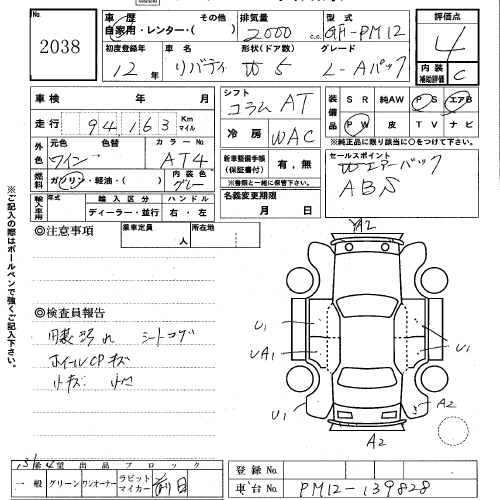 No.
2038
車歴 その他
自家用・レンター・( )
排気量
2000 c.c.
型式
GF-PM12
評価点
4
内装補助評価
C
初度登録年
12年
車名
リバティ
形状(ドア数)
W 5
グレード
L-Aパック
車検 年 月
走行 94,163 Km マイル
外色
元色
ワイン
色替
カラーNo
AT4
燃料
ガソリン・軽油・( )
内装色
グレー
輸入車用
年式
輸入区分
ディーラー・並行
ハンドル
右・左
シフト
コラムAT
冷房
WAC
新車整備手帳(保証書付)
有,無
※書類と一緒に保管下さい。
名義変更期限
月 日
装備品
SR 純AW PS エアB
PW 皮 TV ナビ
※純正品に限り該当に○をつけて下さい。
セールスポイント
Wエアーバック
ABS
◎注意事項
乗車定員
人
所在地
※ご記入の際はボールペンで強くご記入下さい。
◎検査員報告
内装汚れ シートコゲ
ホイールCPキズ
小キズ 小凹
YA2
U1
U1
UA1
U1
U1
A2
A2
希望出品ブロック
一般
グリーン
ワンオーナー
ラビットマイカー
前日
登録No.
車台No.
PM12-139828